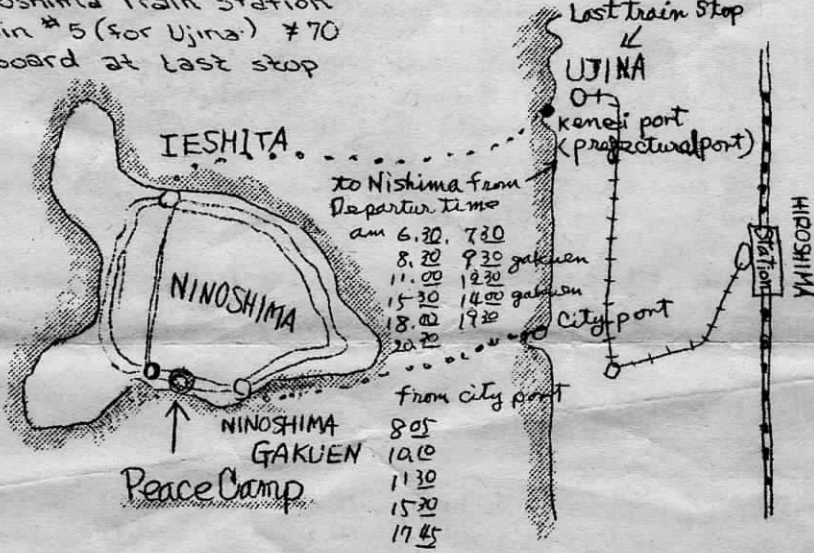 oshima Train Station
in #5 (for Ujina.) ¥70
board at last stop
Last train Stop
UJINA
Kenei port
(prefectural port)
IESHITA
to Nishima from
Departur time
am 6.30. 7.30
8.30 9.30 gakuen
11.00 12.30
15.30 14.00 gakuen
18.00 19.30
City port
NINOSHIMA
Station
HIROSHIMA
from city port
8.05
10.10
11.30
15.30
17.45
NINOSHIMA
GAKUEN
Peace Camp